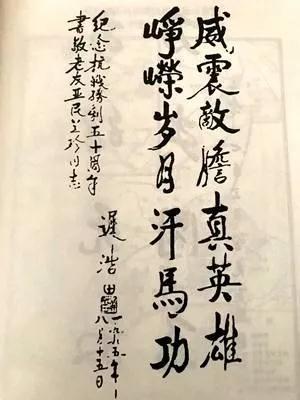 威震敵膽真英雄
崢嶸岁月汗馬功
紀念抗战勝利五十周年
書敬老友亚民玉珍同志
遲浩田
一九九五年
八月十五日